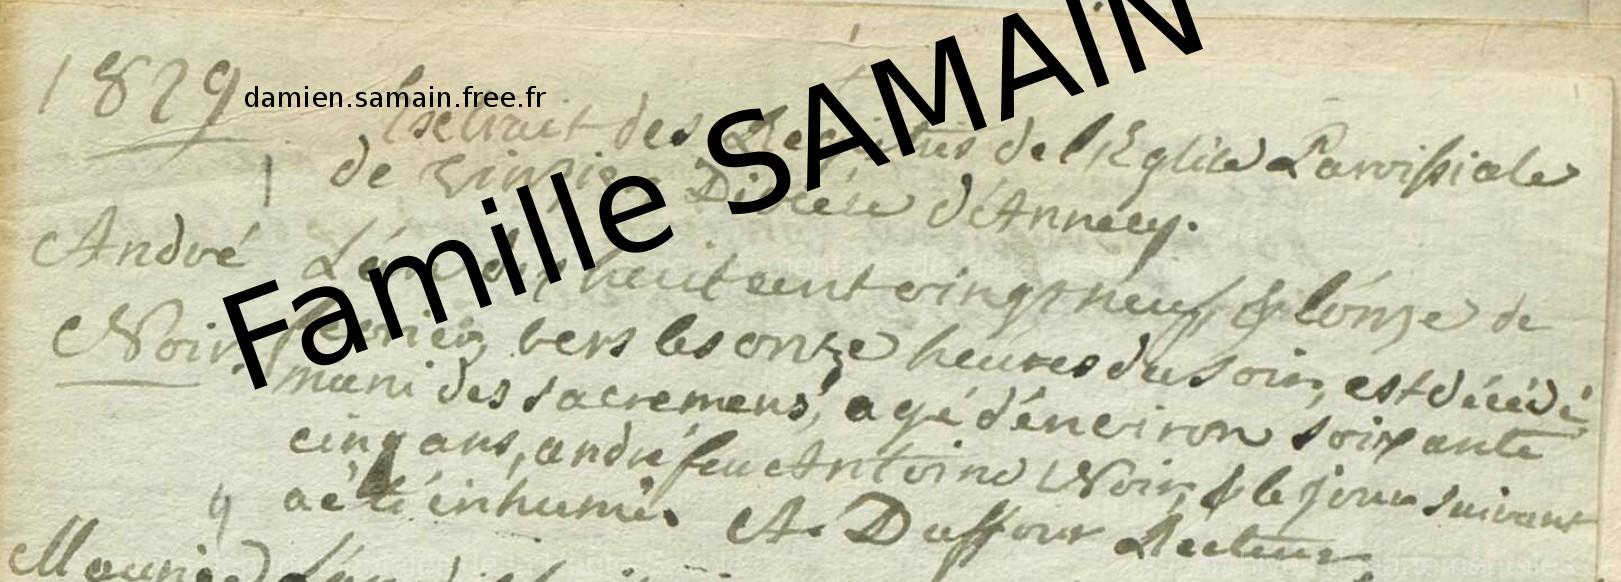 1829
damien.samain.free.fr
Famille SAMAIN
Extrait des Registres de l'Eglise Paroissiale
de Diocèse d'Annecy.
André
L'an dix huit cent vingt neuf, & l'onze de
Noir.
fevrier, vers les onze heures du soir, est décédé
muni des sacremens, agé d'environ soixante
cinq ans, andré feu Antoine Noir, & le jour suivant
a été inhumé. A. Duffour Recteur
9
Maurice L'an